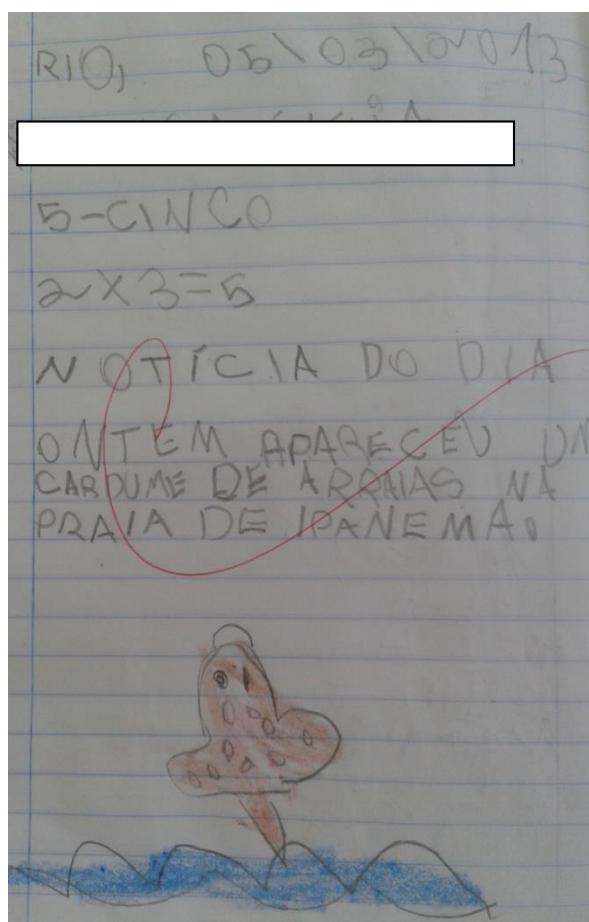 RIO, 05\03\2013
5-CINCO
2X3=5
NOTÍCIA DO DIA
ONTEM APARECEU UM
CARDUME DE ARRAIAS NA
PRAIA DE IPANEMA.